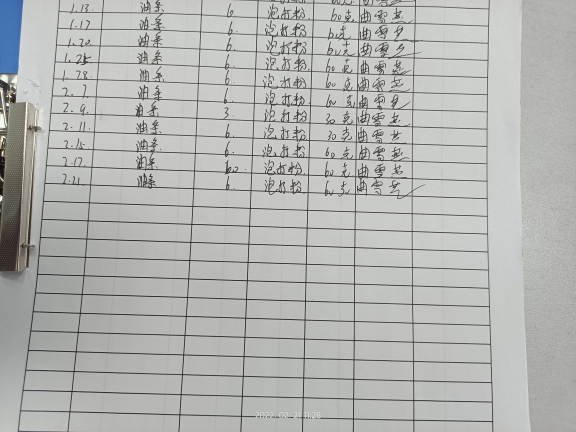 1.13 油条 6 泡打粉 60克
1.17 油条 6. 泡打粉 60克 曲雪
1.20 油条 6. 泡打粉 60克 曲雪
1.25 油条 6. 泡打粉 60克 曲雪
1.28 油条 6. 泡打粉 60克 曲雪
2.7 油条 6. 泡打粉 60克 曲雪
2.9. 油条 3. 泡打粉 30克 曲雪
2.11. 油条 6. 泡打粉 30克 曲雪
2.15. 油条 6. 泡打粉 60克 曲雪
2.17. 油条 泡打粉 60克 曲雪
2.21. 油条 6. 泡打粉 60克 曲雪